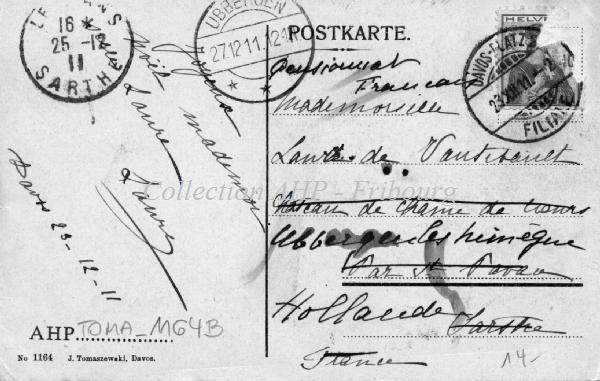 LE MANS
16 *
25 -12
11
SARTHE
UBBERGEN
27.12.11.12-1
* *
POSTKARTE.
HELVETIA
DAVOS-PLATZ
23.XII.11.
FILIALE
Joyeux
Noël
mademoi
Laure
Davos 23-12-11
Pensionnat
Français
Mademoiselle
Laure de
Château de de
Ubbergen les Nimègue
Par St
Hollande Sarthe
France
Collection AHP - Fribourg
AHP TOMA_MG4B
No 1164 J. Tomaszewski, Davos.
14.-